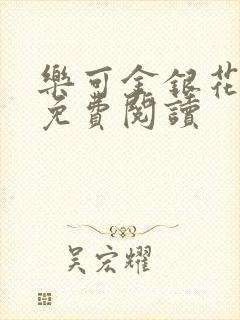 樂可金銀花
免費閱讀
吴宏耀